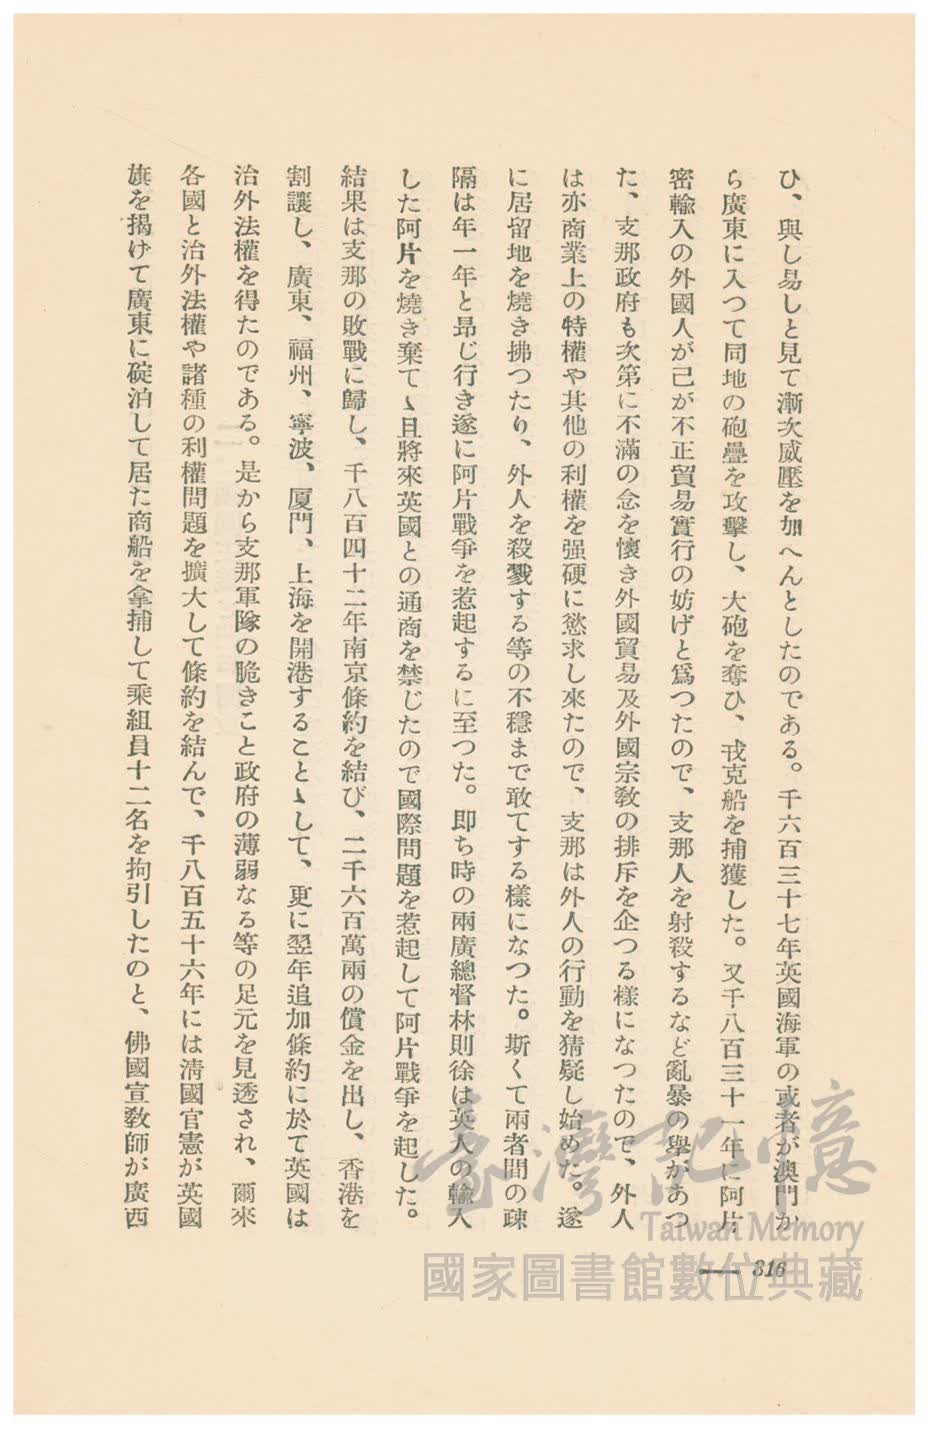 ひ、與し易しと見て漸次威壓を加へんとしたのである。千六百三十七年英國海軍の或者が澳門か
ら廣東に入つて同地の砲疊を攻擊し、大砲を奪ひ、戎克船を捕獲した。又千八百三十一年に阿片
密輸入の外國人が己が不正貿易實行の妨げと爲つたので、支那人を射殺するなど亂暴の擧があつ
た、支那政府も次第に不滿の念を懷き外國貿易及外國宗敎の排斥を企つる樣になつたので、外人
は亦商業上の特權や其他の利權を强硬に慾求し來たので、支那は外人の行動を猜疑し始めた。遂
に居留地を燒き拂つたり、外人を殺戮する等の不穩まで敢てする樣になつた。斯くて兩者間の疎
隔は年一年と昻じ行き遂に阿片戰爭を惹起するに至つた。卽ち時の兩廣總督林則徐は英人の輸入
した阿片を燒き棄てゝ且將來英國との通商を禁じたので國際問題を惹起して阿片戰爭を起した。
結果は支那の敗戰に歸し、千八百四十二年南京條約を結び、二千六百萬兩の償金を出し、香港を
割讓し、廣東、福州、寧波、厦門、上海を開港することゝして、更に翌年追加條約に於て英國は
治外法權を得たのである。是から支那軍隊の脆きこと政府の薄弱なる等の足元を見透され、爾來
各國と治外法權や諸種の利權問題を擴大して條約を結んで、千八百五十六年には淸國官憲が英國
旗を揭げて廣東に碇泊して居た商船を拿捕して乘組員十二名を拘引したのと、佛國宣敎師が廣西
316
臺灣記憶
Taiwan Memory
國家圖書館數位典藏